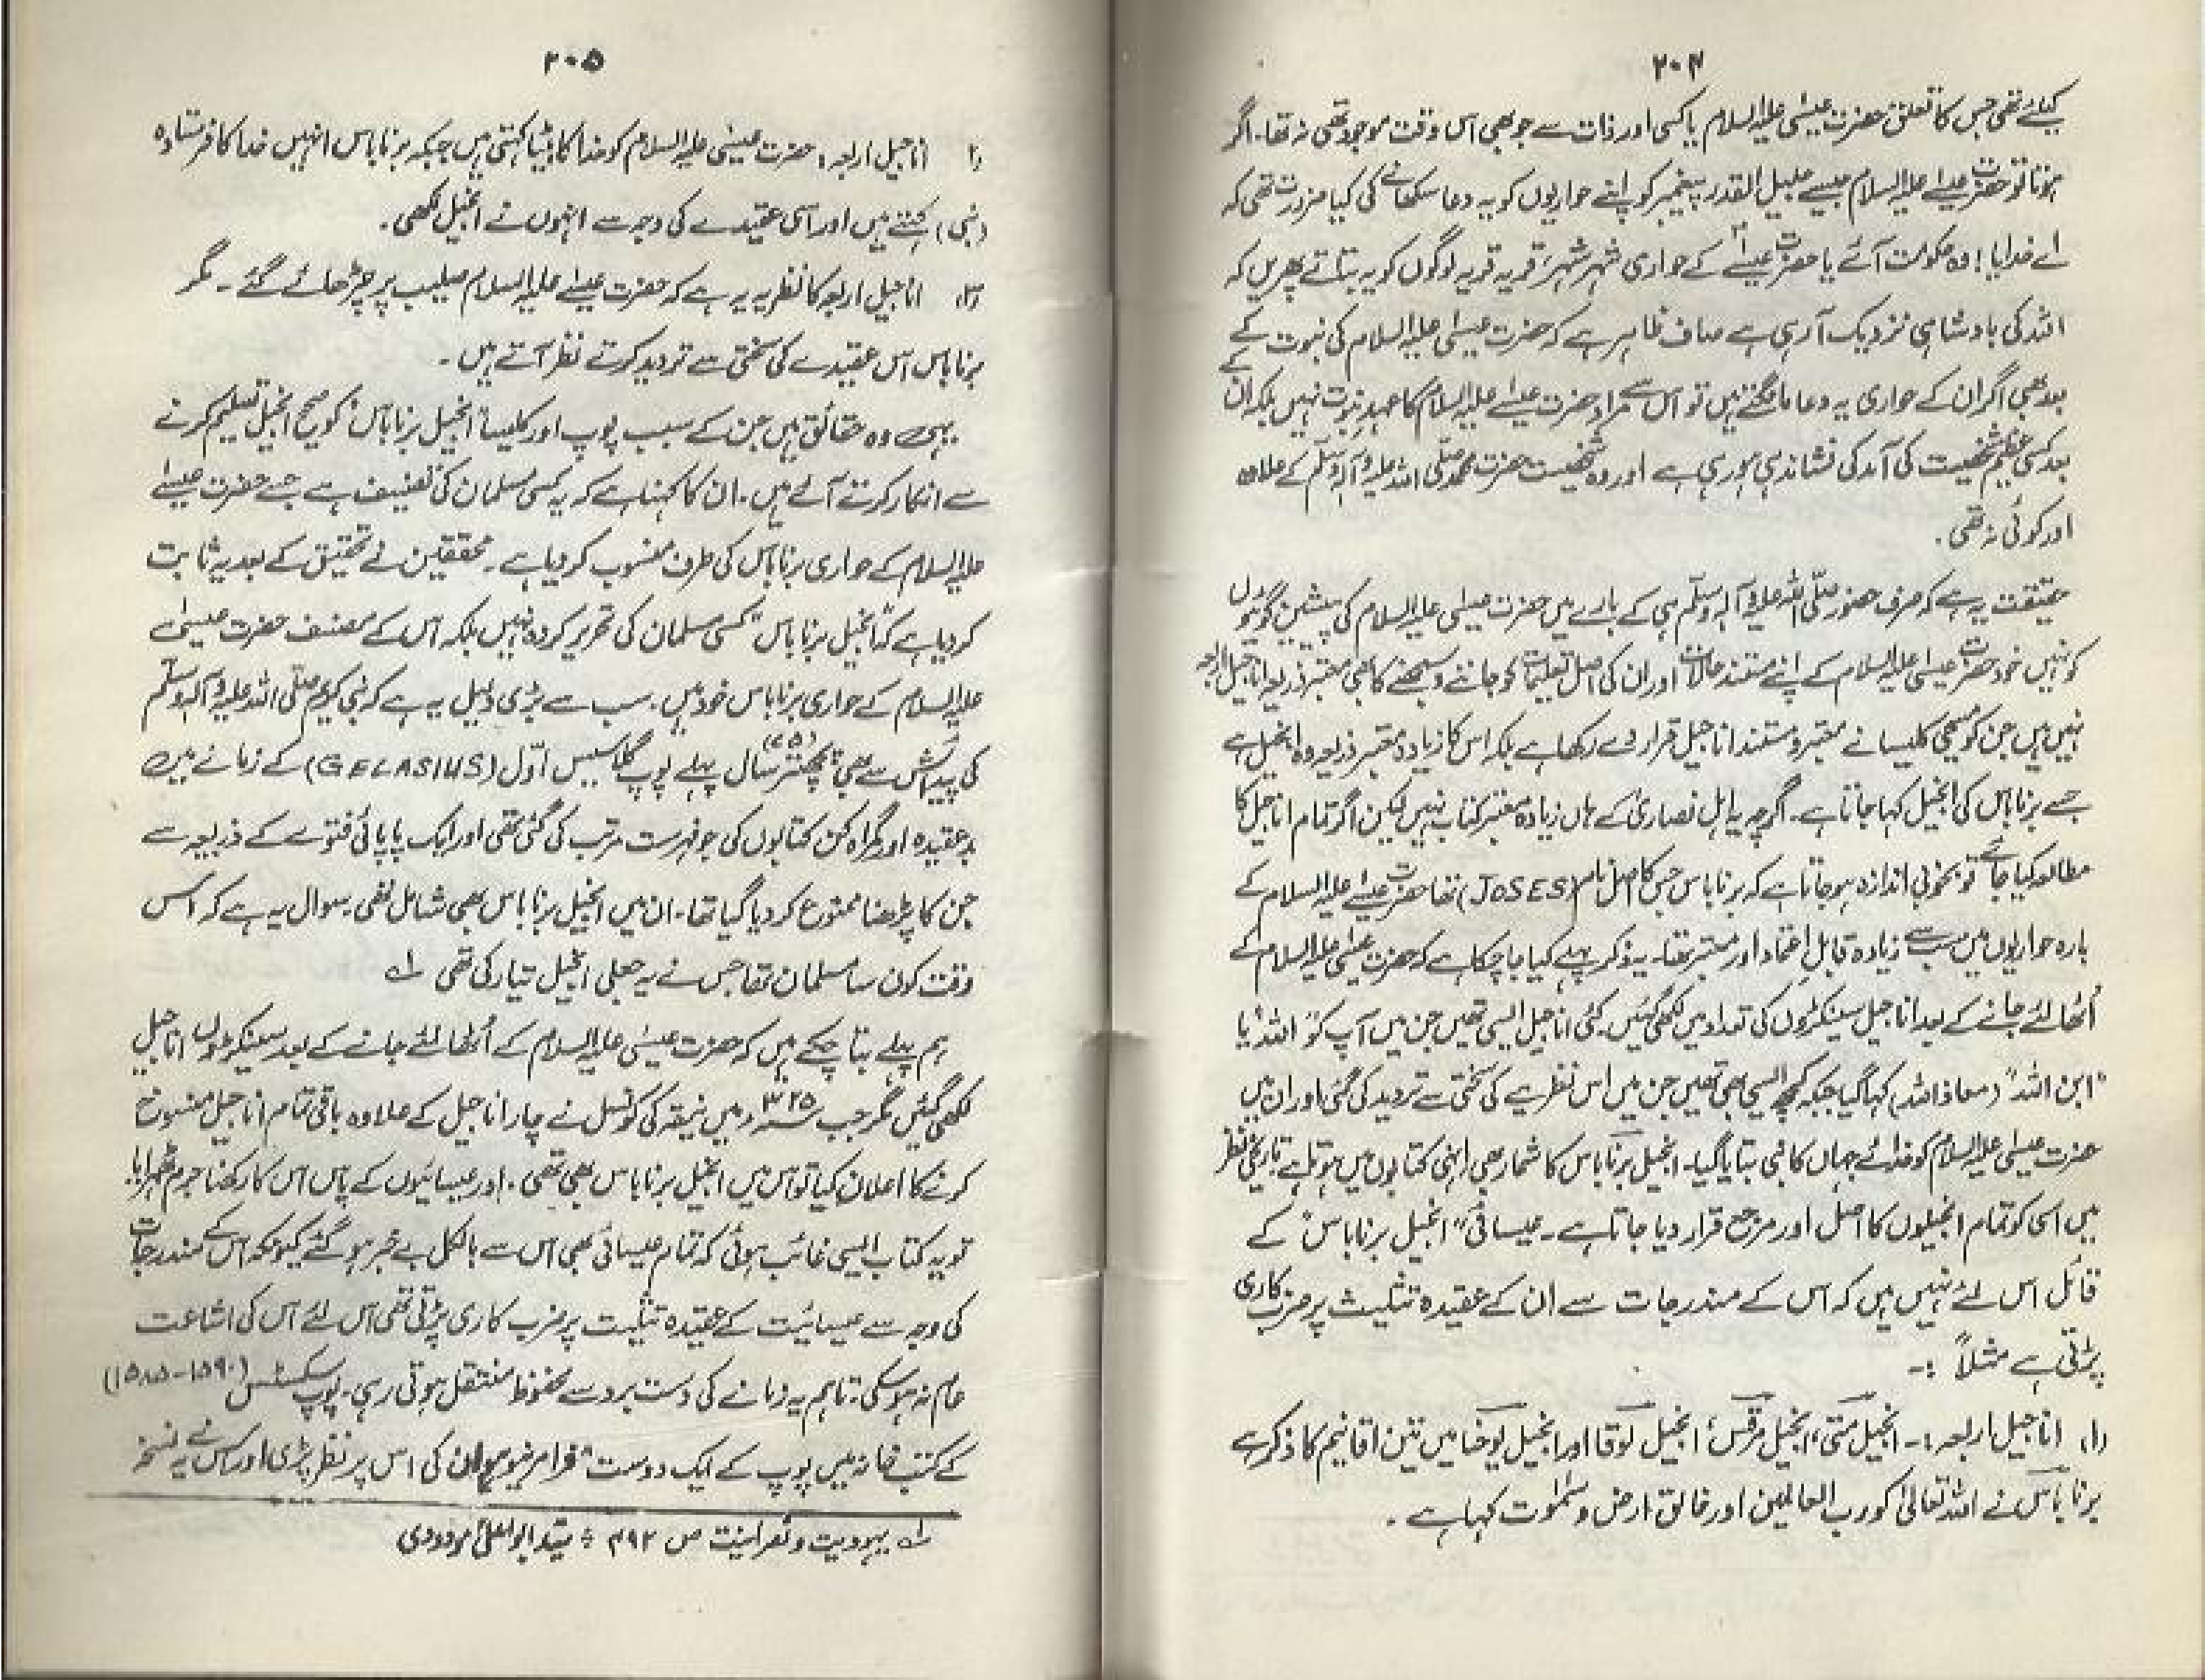 ۲۰۴
کیلئے تھی جس کا تعلق حضرت عیسٰی علیہ السلام یا کسی اور ذات سے جو بھی اس وقت موجود تھی نہ تھا۔ اگر
ہوتا تو حضرت عیسٰے علیہ السلام جیسے جلیل القدر پیغمبر کو اپنے حواریوں کو یہ دعا سکھانے کی کیا ضرورت تھی کہ
اے خدایا! وہ حکومت آئے یا حضرت عیسٰےؑ کے حواری شہر شہر، قریہ قریہ لوگوں کو یہ بتاتے پھریں کہ
اللہ کی بادشاہی نزدیک آ رہی ہے صاف ظاہر ہے کہ حضرت عیسٰی علیہ السلام کی نبوت کے
بعد بھی اگر ان کے حواری یہ دعا مانگتے ہیں تو اس سے مراد حضرت عیسٰے علیہ السلام کا عہدِ نبوت نہیں بلکہ ان کے
بعد کسی عظیم شخصیت کی آمد کی نشاندہی ہو رہی ہے اور وہ شخصیت حضرت محمد صلّی اللہ علیہ وآلہٖ وسلّم کے علاوہ
اور کوئی نہ تھی۔
حقیقت یہ ہے کہ صرف حضور صلّی اللہ علیہ وآلہٖ وسلّم ہی کے بارے میں حضرت عیسٰی علیہ السلام کی پیشین گوئیوں
کو نہیں خود حضرت عیسٰی علیہ السلام کے اپنے مستند حالات اور ان کی اصل تعلیمات کو جاننے و سمجھنے کا بھی معتبر ذریعہ اناجیل اربعہ
نہیں ہیں جن کو مسیحی کلیسا نے معتبر و مستند اناجیل قرار دے رکھا ہے بلکہ اس کا زیادہ معتبر ذریعہ وہ انجیل ہے
جسے برناباس کی انجیل کہا جاتا ہے۔ اگرچہ یہ اہل نصاریٰ کے ہاں زیادہ معتبر کتاب نہیں لیکن اگر تمام اناجیل کا
مطالعہ کیا جائے تو بخوبی اندازہ ہو جاتا ہے کہ برناباس جس کا اصل نام (JOSES) تھا حضرت عیسٰے علیہ السلام کے
بارہ حواریوں میں سب سے زیادہ قابلِ اعتماد اور معتبر تھا۔ یہ ذکر پہلے کیا جا چکا ہے کہ حضرت عیسٰی علیہ السلام کے
اُٹھا لئے جانے کے بعد اناجیل سینکڑوں کی تعداد میں لکھی گئیں۔ کئی اناجیل ایسی تھیں جن میں آپ کو "اللہ" یا
"ابن اللہ" (معاذ اللہ) کہا گیا جبکہ کچھ ایسی بھی تھیں جن میں اس نظریے کی سختی سے تردید کی گئی اور ان میں
حضرت عیسٰی علیہ السلام کو خدائے جہاں کا نبی بتایا گیا۔ انجیل برناباس کا شمار بھی انہی کتابوں میں ہوتا ہے تاریخی نظر
میں اسی کو تمام انجیلوں کا اصل اور مرجع قرار دیا جاتا ہے۔ عیسائی "انجیل برناباس" کے
قائل اس لئے نہیں ہیں کہ اس کے مندرجات سے ان کے عقیدہ تثلیث پر ضرب کاری
پڑتی ہے مثلاً :۔
(۱) اناجیل اربعہ :۔ انجیل متّی، انجیل مرقس، انجیل لوقا اور انجیل یوحنا میں تین اقانیم کا ذکر ہے
برناباس نے اللہ تعالیٰ کو رب العالمین اور خالق ارض و سمٰوٰت کہا ہے۔
۲۰۵
۲) اناجیل اربعہ، حضرت عیسٰی علیہ السلام کو خدا کا بیٹا کہتی ہیں جبکہ برناباس انہیں خدا کا فرستادہ
(نبی) کہتے ہیں اور اسی عقیدے کی وجہ سے انہوں نے انجیل لکھی۔
(۳) اناجیل اربعہ کا نظریہ یہ ہے کہ حضرت عیسٰے علیہ السلام صلیب پر چڑھائے گئے۔ مگر
برناباس اس عقیدے کی سختی سے تردید کرتے نظر آتے ہیں۔
یہی وہ حقائق ہیں جن کے سبب پوپ اور کلیسا "انجیل برناباس" کو صحیح انجیل تسلیم کرنے
سے انکار کرتے آئے ہیں۔ ان کا کہنا ہے کہ یہ کسی مسلمان کی تصنیف ہے جسے حضرت عیسٰے
علیہ السلام کے حواری برناباس کی طرف منسوب کر دیا ہے۔ محققین نے تحقیق کے بعد یہ ثابت
کر دیا ہے کہ "انجیل برناباس" کسی مسلمان کی تحریر کردہ نہیں بلکہ اس کے مصنف حضرت عیسٰی
علیہ السلام کے حواری برناباس خود ہیں۔ سب سے بڑی دلیل یہ ہے کہ نبی کریم صلّی اللہ علیہ وآلہٖ وسلّم
کی پیدائش سے بھی پچھتر (۷۵) سال پہلے پوپ گلاسیس اوّل (GELASIUS) کے زمانے میں
بدعقیدہ اور گمراہ کن کتابوں کی جو فہرست مرتب کی گئی تھی اور ایک پاپائی فتوے کے ذریعہ سے
جن کا پڑھنا ممنوع کر دیا گیا تھا۔ ان میں انجیل برناباس بھی شامل تھی۔ سوال یہ ہے کہ اس
وقت کون سا مسلمان تھا جس نے یہ جعلی انجیل تیار کی تھی ۱ے
ہم پہلے بتا چکے ہیں کہ حضرت عیسٰی علیہ السلام کے اُٹھا لئے جانے کے بعد سینکڑوں اناجیل
لکھی گئیں مگر جب ۳۲۵ء میں نیقیہ کی کونسل نے چار اناجیل کے علاوہ باقی تمام اناجیل منسوخ
کرنے کا اعلان کیا تو اس میں انجیل برناباس بھی تھی۔ اور عیسائیوں کے پاس اس کا رکھنا جرم ٹھہرایا۔
تو یہ کتاب ایسی غائب ہوئی کہ تمام عیسائی بھی اس سے بالکل بے خبر ہو گئے کیونکہ اس کے مندرجات
کی وجہ سے عیسائیت کے عقیدہ تثلیث پر ضرب کاری پڑتی تھی اس لئے اس کی اشاعت
عام نہ ہو سکی۔ تاہم یہ زمانے کی دست برد سے محفوظ منتقل ہوتی رہی۔ پوپ سکسٹس (۱۵۹۰-۱۵۸۵)
کے کتب خانہ میں پوپ کے ایک دوست "فرا مرینو" کی اس پر نظر پڑی اور اس نے یہ نسخہ
۱ے یہودیت و نصرانیت ص ۴۹۲ ؛ سیّد ابوالاعلیٰ مودودی